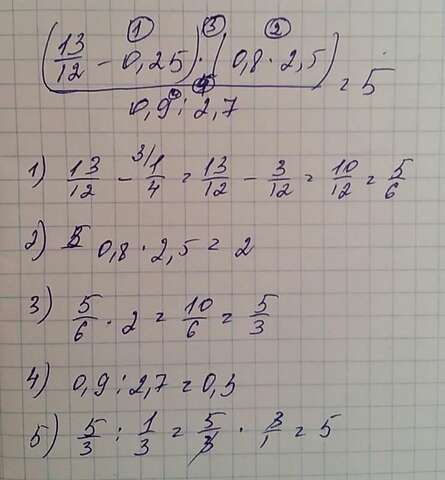 ① ③ ②
(13/12 - 0,25) · (0,8 · 2,5)
= 5
0,9 : 2,7
1) 13/12 - 3/1/4 = 13/12 - 3/12 = 10/12 = 5/6
2) 0,8 · 2,5 = 2
3) 5/6 · 2 = 10/6 = 5/3
4) 0,9 : 2,7 = 0,3
5) 5/3 : 1/3 = 5/3 · 3/1 = 5